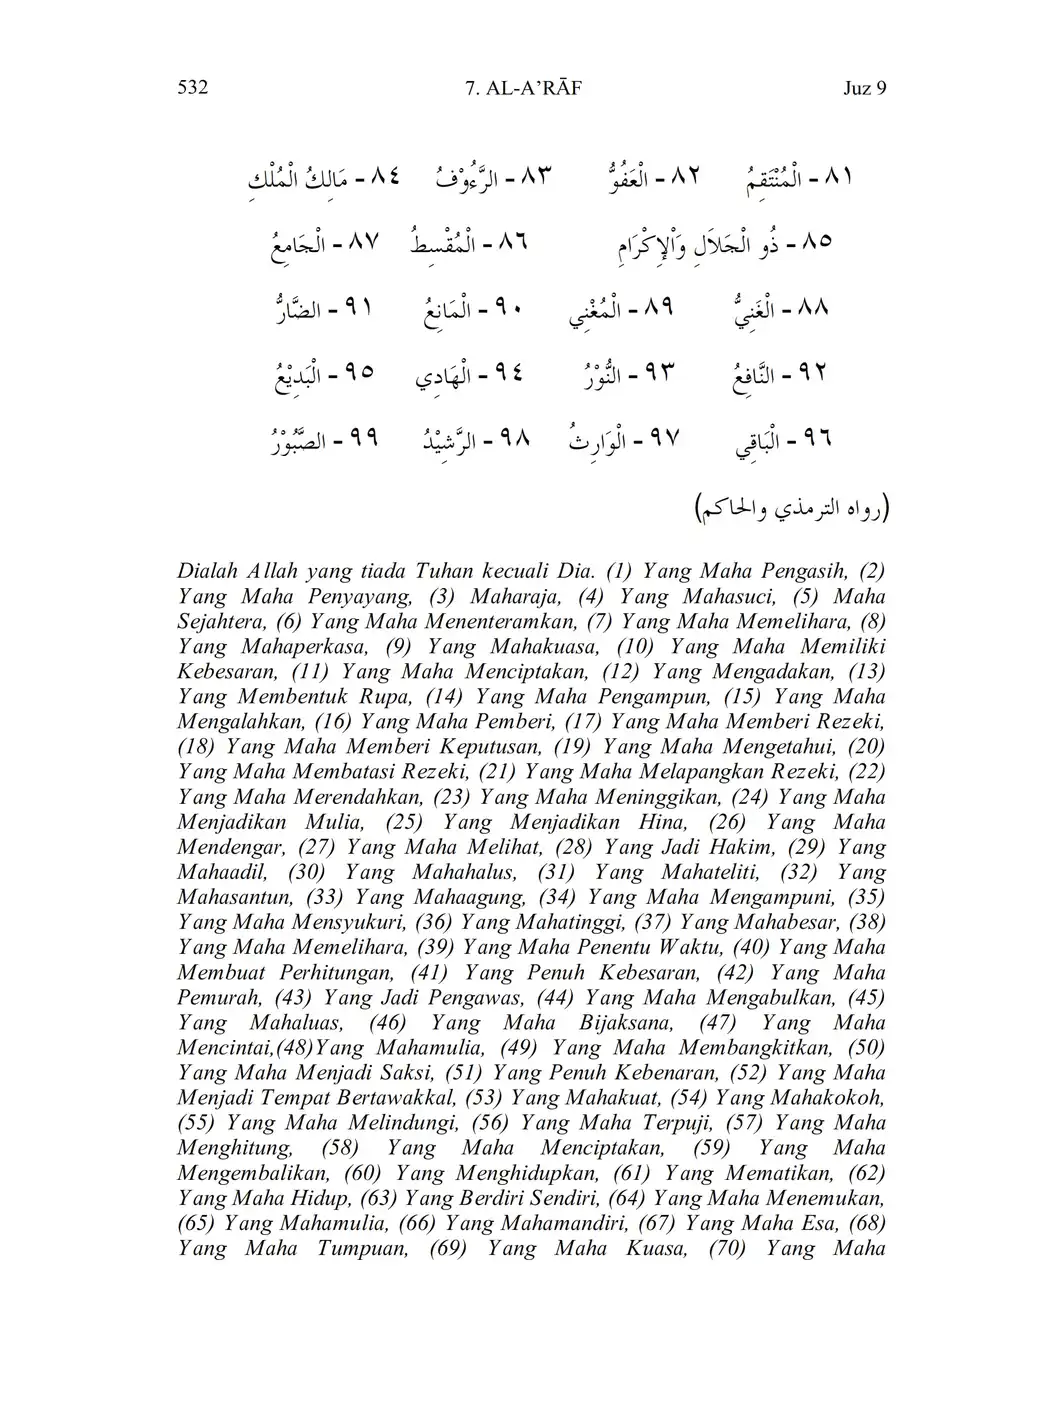 532 7. AL-A’RĀF Juz 9
٨١ - الْمُنْتَقِمُ ٨٢ - الْعَفُوُّ ٨٣ - الرَّءُوْفُ ٨٤ - مَالِكُ الْمُلْكِ
٨٥ - ذُو الْجَلاَلِ وَاْلإِكْرَامِ ٨٦ - الْمُقْسِطُ ٨٧ - الْجَامِعُ
٨٨ - الْغَنِيُّ ٨٩ - الْمُغْنِي ٩٠ - الْمَانِعُ ٩١ - الضَّارُّ
٩٢ - النَّافِعُ ٩٣ - النُّوْرُ ٩٤ - الْهَادِي ٩٥ - الْبَدِيْعُ
٩٦ - الْبَاقِي ٩٧ - الْوَارِثُ ٩٨ - الرَّشِيْدُ ٩٩ - الصَّبُوْرُ
(رواه الترمذي والحاكم)
Dialah Allah yang tiada Tuhan kecuali Dia. (1) Yang Maha Pengasih, (2)
Yang Maha Penyayang, (3) Maharaja, (4) Yang Mahasuci, (5) Maha
Sejahtera, (6) Yang Maha Menenteramkan, (7) Yang Maha Memelihara, (8)
Yang Mahaperkasa, (9) Yang Mahakuasa, (10) Yang Maha Memiliki
Kebesaran, (11) Yang Maha Menciptakan, (12) Yang Mengadakan, (13)
Yang Membentuk Rupa, (14) Yang Maha Pengampun, (15) Yang Maha
Mengalahkan, (16) Yang Maha Pemberi, (17) Yang Maha Memberi Rezeki,
(18) Yang Maha Memberi Keputusan, (19) Yang Maha Mengetahui, (20)
Yang Maha Membatasi Rezeki, (21) Yang Maha Melapangkan Rezeki, (22)
Yang Maha Merendahkan, (23) Yang Maha Meninggikan, (24) Yang Maha
Menjadikan Mulia, (25) Yang Menjadikan Hina, (26) Yang Maha
Mendengar, (27) Yang Maha Melihat, (28) Yang Jadi Hakim, (29) Yang
Mahaadil, (30) Yang Mahahalus, (31) Yang Mahateliti, (32) Yang
Mahasantun, (33) Yang Mahaagung, (34) Yang Maha Mengampuni, (35)
Yang Maha Mensyukuri, (36) Yang Mahatinggi, (37) Yang Mahabesar, (38)
Yang Maha Memelihara, (39) Yang Maha Penentu Waktu, (40) Yang Maha
Membuat Perhitungan, (41) Yang Penuh Kebesaran, (42) Yang Maha
Pemurah, (43) Yang Jadi Pengawas, (44) Yang Maha Mengabulkan, (45)
Yang Mahaluas, (46) Yang Maha Bijaksana, (47) Yang Maha
Mencintai,(48)Yang Mahamulia, (49) Yang Maha Membangkitkan, (50)
Yang Maha Menjadi Saksi, (51) Yang Penuh Kebenaran, (52) Yang Maha
Menjadi Tempat Bertawakkal, (53) Yang Mahakuat, (54) Yang Mahakokoh,
(55) Yang Maha Melindungi, (56) Yang Maha Terpuji, (57) Yang Maha
Menghitung, (58) Yang Maha Menciptakan, (59) Yang Maha
Mengembalikan, (60) Yang Menghidupkan, (61) Yang Mematikan, (62)
Yang Maha Hidup, (63) Yang Berdiri Sendiri, (64) Yang Maha Menemukan,
(65) Yang Mahamulia, (66) Yang Mahamandiri, (67) Yang Maha Esa, (68)
Yang Maha Tumpuan, (69) Yang Maha Kuasa, (70) Yang Maha